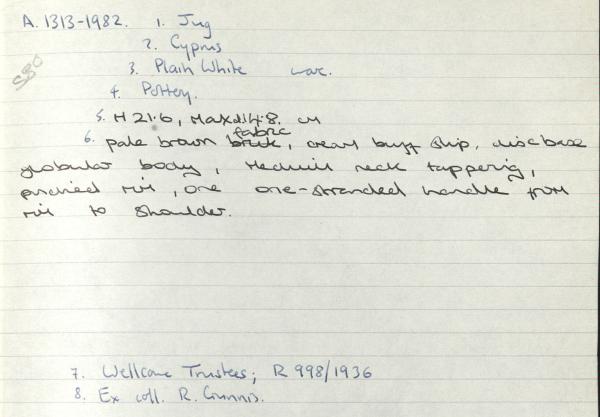 A. 1313-1982. 1. Jug
2. Cyprus
3. Plain White ware.
580
4. Pottery.
5. H 21.6, Max d 14.8. cm
6. pale brown fabric, cream buff slip, disc base
globular body, medium neck tapperig,
pinched rim, one one-stranded handle from
rim to shoulder.
7. Wellcome Trustees; R 998/1936
8. Ex coll. R. Gunnis.